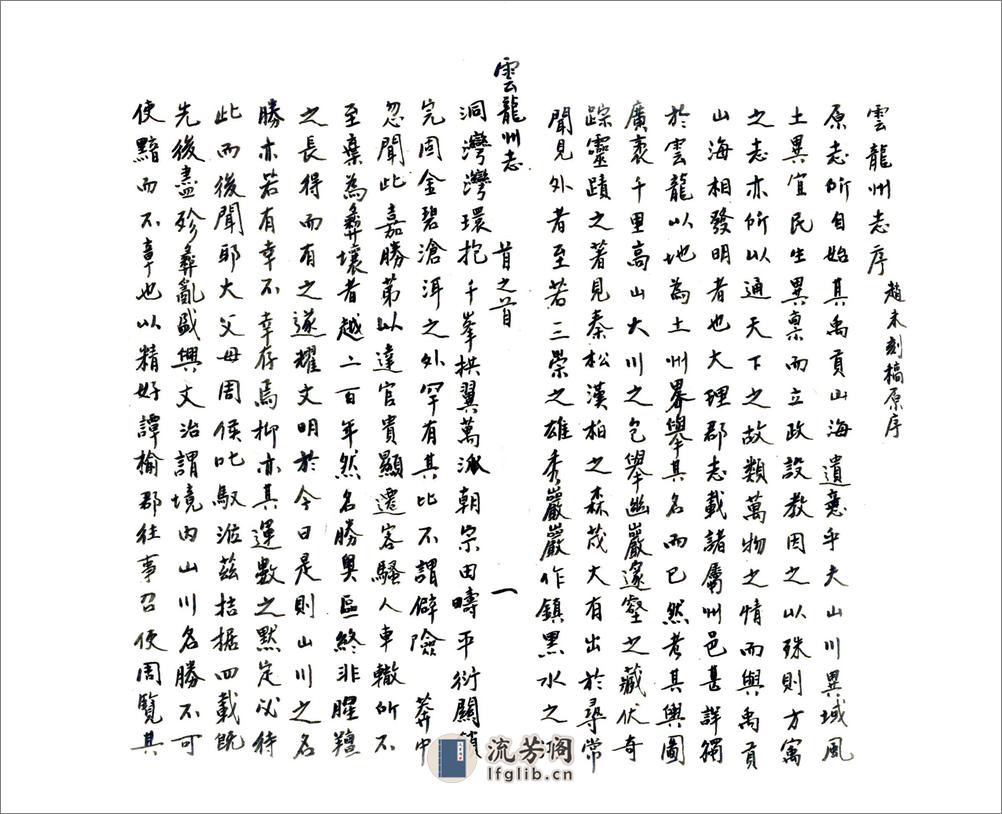 雲龍州志序 趙未刻稿原序
原志所自始其禹貢山海遺意乎夫山川異域風
土異宜民生異禀而立政設教因之以殊則方寓
之志亦所以通天下之故類萬物之情而與禹貢
山海相發明者也大理郡志載諸屬州邑甚詳獨
於雲龍以地為土州畧舉其名而已然考其輿圖
廣袤千里高山大川之包舉幽巖邃壑之藏伏奇
踪靈蹟之著見秦松漢柏之森茂大有出於尋常
聞見外者至若三崇之雄秀巖巖作鎮黑水之
雲龍州志 首之首 一
洞灣灣環抱千峯拱翼萬派朝宗田疇平衍關鎖
完固金碧滄洱之外罕有其比不謂僻險莽中
忽聞此嘉勝第以達官貴顯遷客騷人車轍所不
至棄為彝壤者越二百年然名勝奧區終非腥羶
之長得而有之遂耀文明於今日是則山川之名
勝亦若有幸不幸存焉抑亦其運數之默定必待
此而後聞耶大父母周侯叱馭蒞茲拮据四載既
先後盡殄彝亂盛興文治謂境內山川名勝不可
使黯而不章也以精好譚榆郡往事召使周覽其